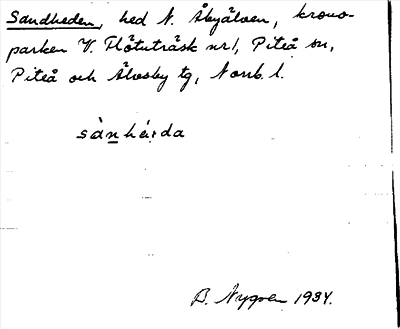 Sandheden, hed N. Åbyälven, krono-
parken V. Flötuträsk nr 1, Piteå sn,
Piteå och Älvsby tg, Norrb. l.
sànhé̀ːda
B. Nygren 1934.